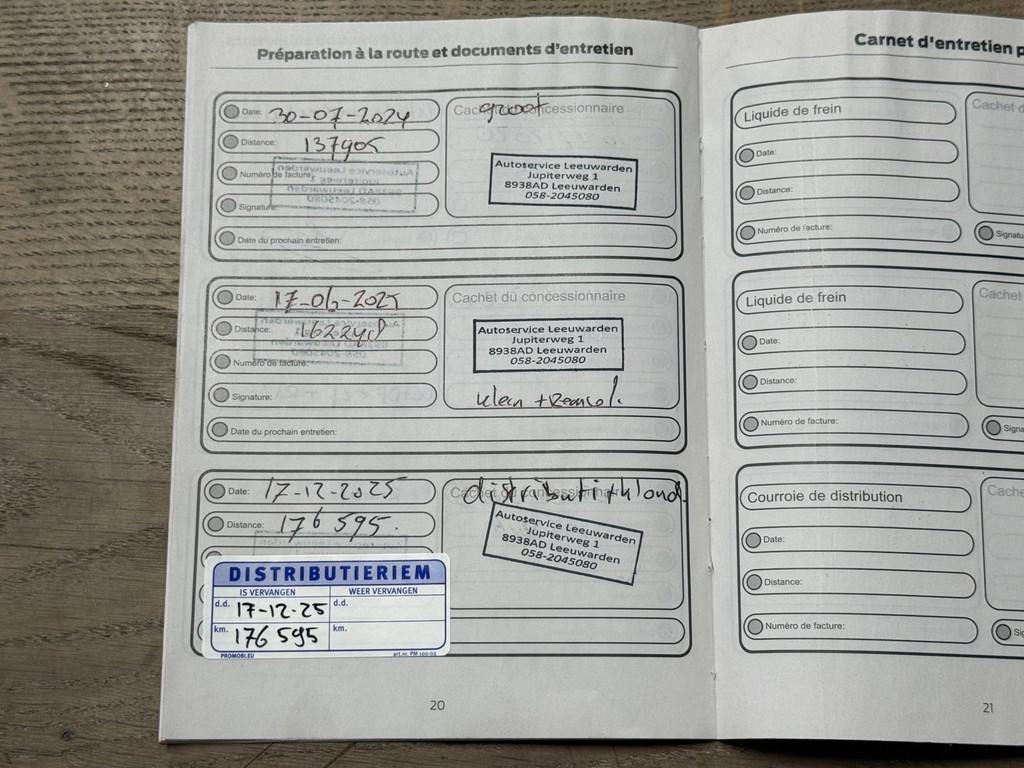 Préparation à la route et documents d'entretien
Date: 30-07-2024
Distance: 137905
Numéro de facture:
Signature:
Date du prochain entretien:
Cachet du concessionnaire
groot
Autoservice Leeuwarden
Jupiterweg 1
8938AD Leeuwarden
058-2045080
Date: 17-06-2025
Distance:
Numéro de facture:
Signature:
Date du prochain entretien:
Cachet du concessionnaire
Autoservice Leeuwarden
Jupiterweg 1
8938AD Leeuwarden
058-2045080
klein +
Date: 17-12-2025
Distance: 176 595.
Cachet du concessionnaire
Autoservice Leeuwarden
Jupiterweg 1
8938AD Leeuwarden
058-2045080
DISTRIBUTIERIEM
IS VERVANGEN WEER VERVANGEN
d.d. 17-12-25 d.d.
km. 176 595 km.
PROMOBI.EU art.nr. PM 100-02
20
Carnet d'entretien p
Liquide de frein
Date:
Distance:
Numéro de facture:
Cachet d
Signatu
Liquide de frein
Date:
Distance:
Numéro de facture:
Cachet
Signa
Courroie de distribution
Date:
Distance:
Numéro de facture:
Cache
Sig
21